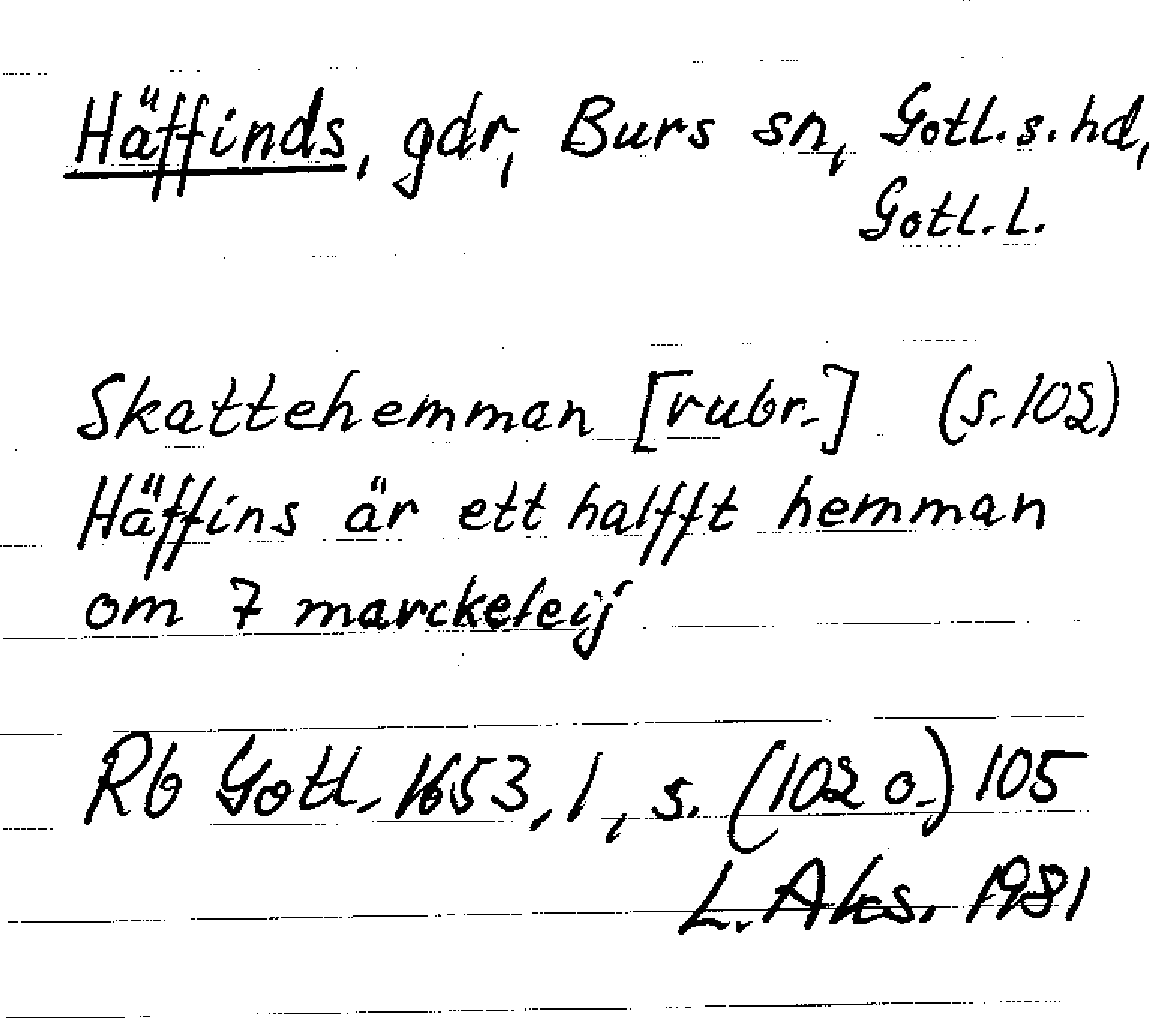 Häffinds, gdr, Burs sn, Gotl. s. hd,
Gotl. l.
Skattehemman [rubr.] (s. 102)
Häffins är ett halfft hemman
om 7 marckeleij
Rb Gotl. 1653, 1, s. (102 o.) 105
L. Aks. 1981